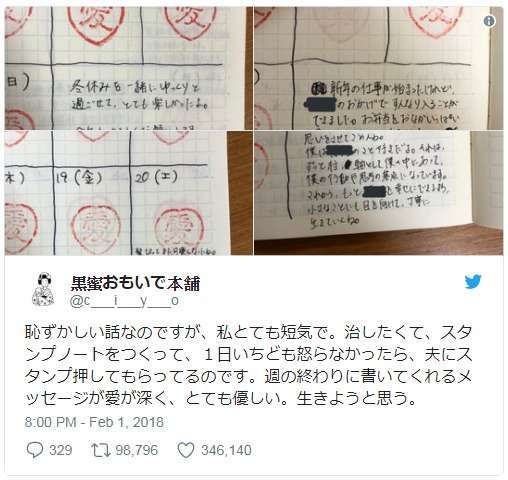 愛
愛
愛
日)
冬休みを一緒にゆっくりと
過ごせて、とても楽しかったよ。
新年の仕事が始まったけれど、
のおかげですんなり入ることが
できました。お弁当も
木)
19(金)
20(土)
愛
愛
思いをさせてごめんね。
僕は
僕の行動や思考の基点になっている。
これからも、もっと
小さなことにも目を向けて、丁寧に
生きていくね。
黒蜜おもいで本舗
@c___i___y___o
恥ずかしい話なのですが、私とても短気で。治したくて、スタ
ンプノートをつくって、１日いちども怒らなかったら、夫にス
タンプ押してもらってるのです。週の終わりに書いてくれるメ
ッセージが愛が深く、とても優しい。生きようと思う。
8:00 PM - Feb 1, 2018
329 98,796 346,140